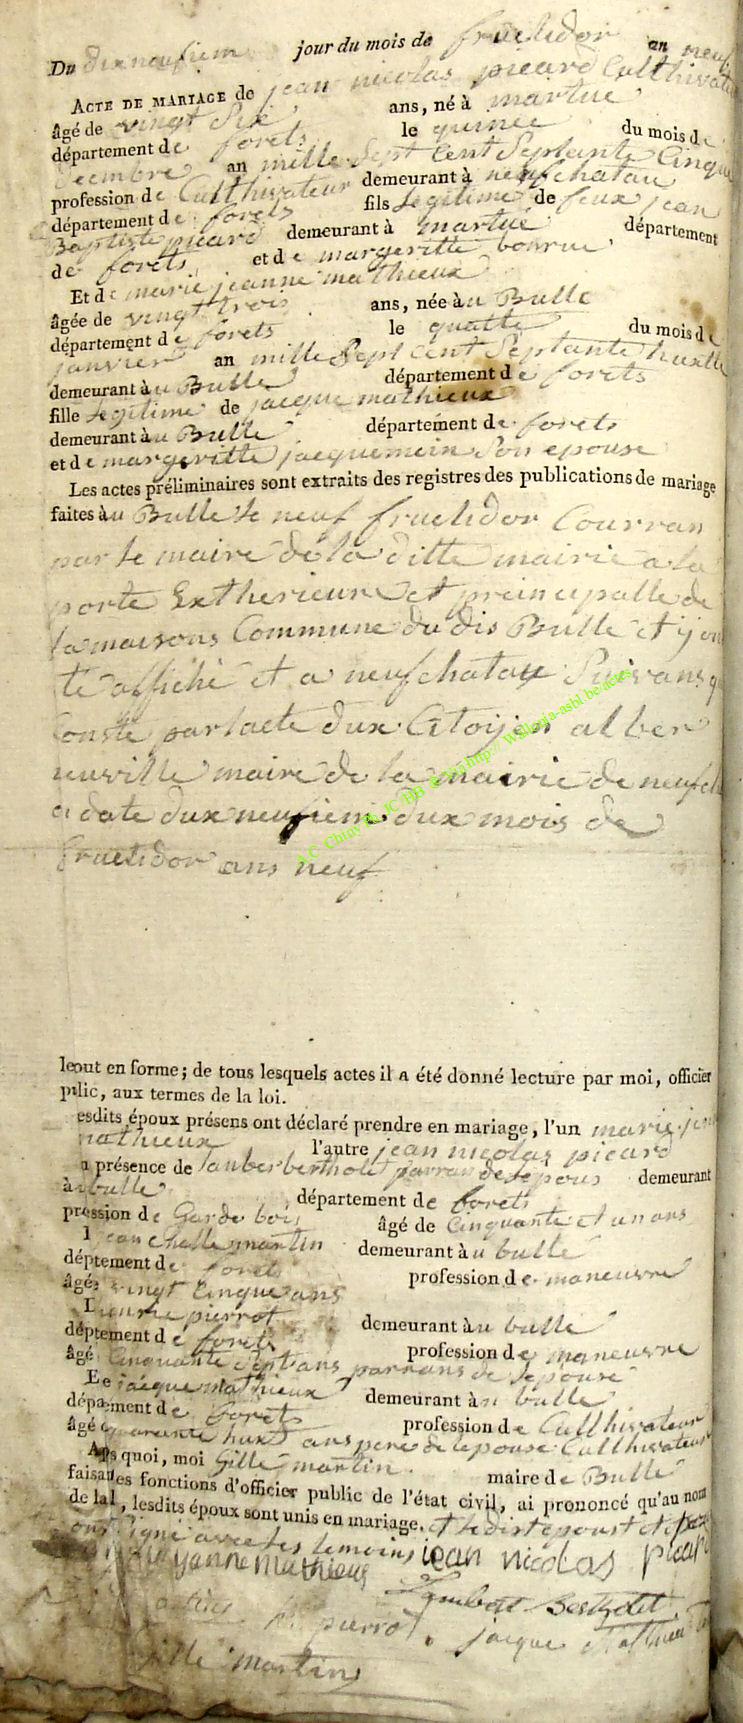 Du dixneufiem jour du mois de fructidor an neuf
ACTE DE MARIAGE de jean nicolas picard Culthivateur
âgé de vingt Six ans, né à martue
département de forets le quince du mois de
Decembre an mille Sept Cent Septante Cinque
profession de Culthivateur demeurant à neufchatau
département de forets fils Legitime de feux jean
Baptiste picard demeurant à martué département
de forets et de margeritte bourue
Et de marie jeanne mathieux
âgée de vingt trois ans, née àu Bulle
département de forets le quatte du mois de
janvier an mille Sept Cent Septante huitte
demeurant àu Bulle département de forets
fille Legitime de jacque mathieux
demeurant àu Bulle département de forets
et de margeritte jacquemein Son epouse
Les actes préliminaires sont extraits des registres des publications de mariage
faites àu Bulle le neuf fructidor Courran
par le maire de la ditte mairie a la
porte Extherieure et preincipalle de
la maisons Commune du dis Bulle et y
te affiché et a neufchatau Suivans
Conste par lacte dux Citoyen alber
neuville maire de la mairie de neufch
a date dux neufiem dux mois de
fructidor ans neuf
A.C. Chiny http:// Wallonia-asbl.be/actes
le tout en forme; de tous lesquels actes il a été donné lecture par moi, officier
public, aux termes de la loi.
esdits époux présens ont déclaré prendre en mariage, l'un marie
mathieux l'autre jean nicolas picard
présence de lamber bertholet parran de Lepous demeurant
àu bulle département de forets
profession de Garde bois âgé de Cinquante et un ans
jean martin demeurant àu bulle
département de forets profession de maneuvre
âgé vingt Cinque ans
pierrot demeurant àu bulle
département de forets profession de maneuvre
âgé Cinquante Sept ans parrans de Lepouse
Et jacque mathieux demeurant àu bulle
département de forets profession de Culthivateur
âgé quarante huit ans pere de lepouse Culthivateur
Après quoi, moi Gille martin maire de Bulle
faisant les fonctions d'officier public de l'état civil, ai prononcé qu'au nom
de la loi, lesdits époux sont unis en mariage. et le dist epoust et
ont Signé avec les temoins jean nicolas picard
yanne Mathieus
Lambert Bertholet
pierrot jacque Mathieu
Gille martin